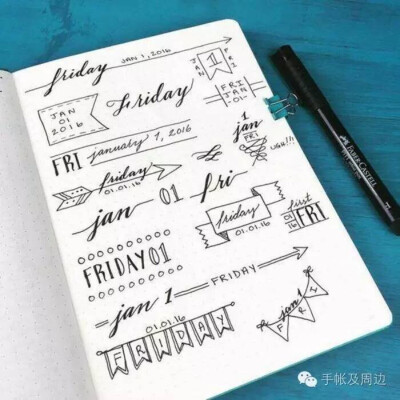 friday
JAN 1, 2016
JAN
FRI
JAN
01
2016
Friday
FRI
JAN
-01-
FRI january 1, 2016
1
jan
FRI
UGH!!!
friday
01.01.16
jan 01
fri
friday
01.01.16
first
01
16
FRI
FRIDAY 01
jan 1
FRIDAY
jan 1
FRI
01.01.16
FRIDAY
FABER-CASTELL
手帐及周边